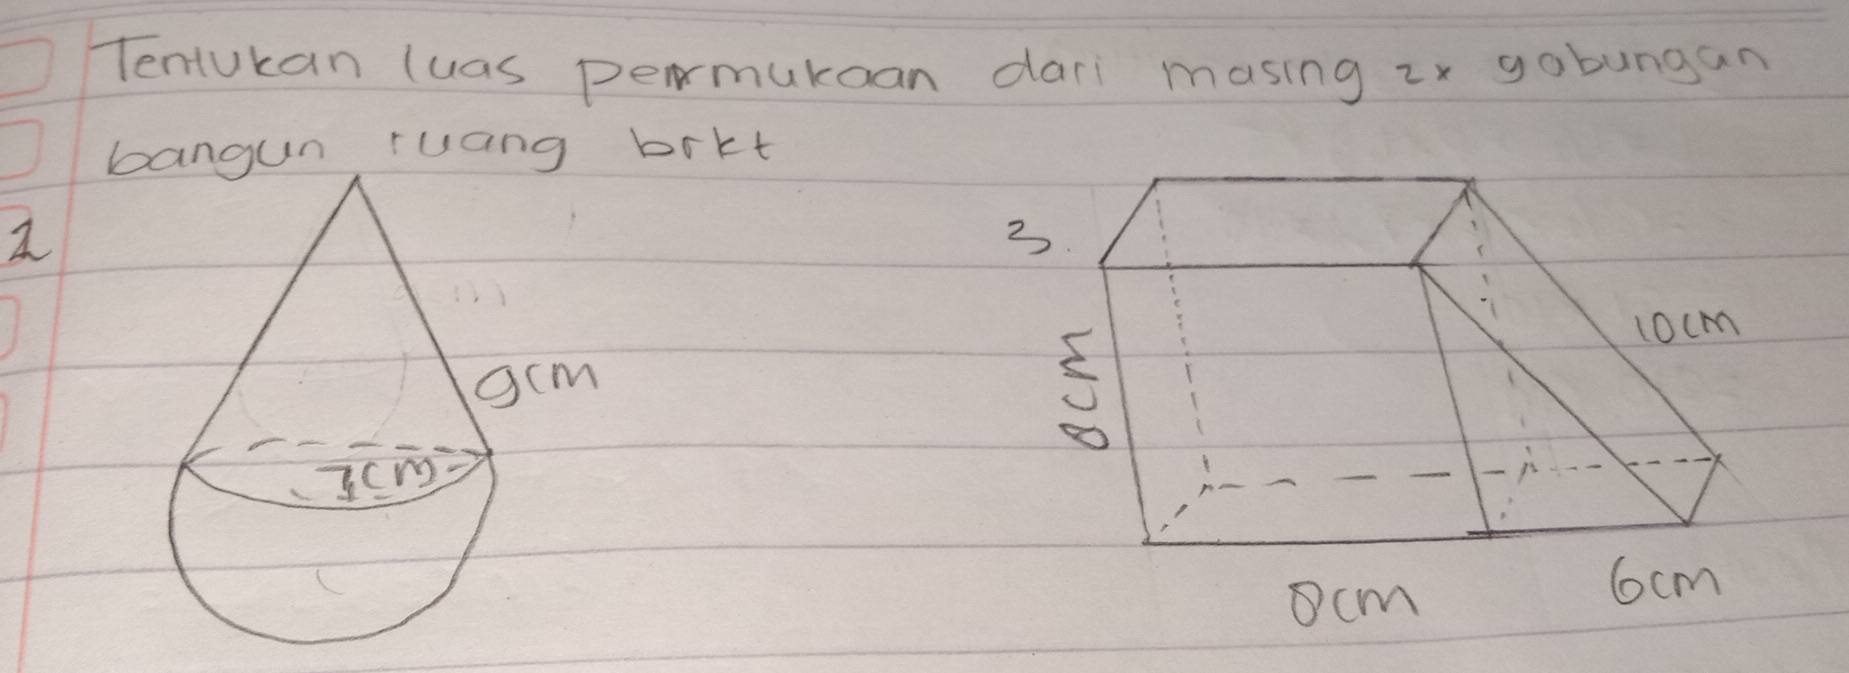 Tentukan luas permukaan dari masing 2x gabungan
bangun ruang brkt
2
9cm
7cm
3.
8cm
10cm
8cm
6cm